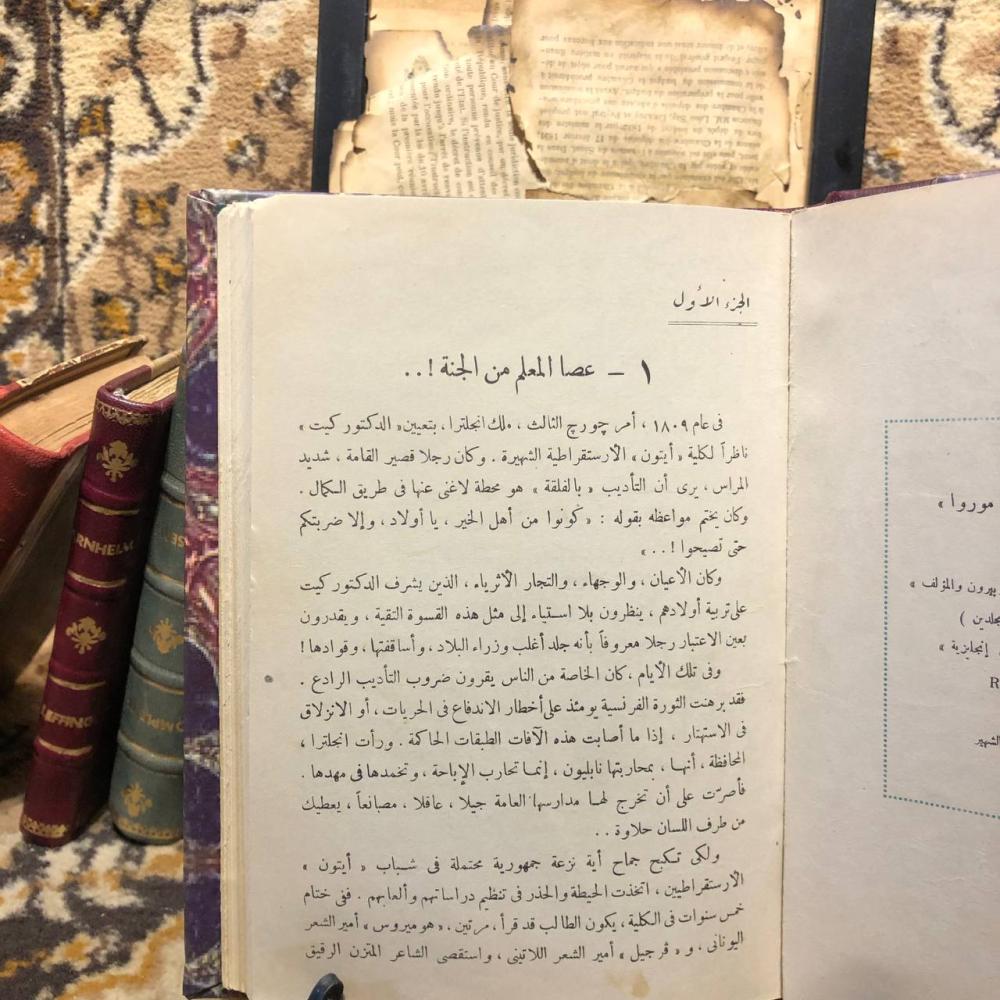 الجزء الأول
١ – عصا المعلم من الجنة !..
فى عام ١٨٠٩ ، أمر چورچ الثالث ، ملك انجلترا ، بتعيين « الدكتور كيت »
ناظراً لكلية « أيتون » الأرستقراطية الشهيرة . وكان رجلا قصير القامة ، شديد
المراس ، يرى أن التأديب « بالفلقة » هو محطة لاغنى عنها فى طريق الكمال .
وكان يختم مواعظه بقوله : « كونوا من أهل الخير ، يا أولاد ، وإلا ضربتكم
حتى تصيحوا ! . . »
وكان الأعيان ، والوجهاء ، والتجار الأثرياء ، الذين يشرف الدكتور كيت
على تربية أولادهم ، ينظرون بلا استياء إلى مثل هذه القسوة التقية ، ويقدرون
بعين الاعتبار رجلا معروفاً بأنه جلد أغلب وزراء البلاد ، وأساقفتها ، وقوادها !
وفى تلك الأيام ، كان الخاصة من الناس يقرون ضروب التأديب الرادع .
فقد برهنت الثورة الفرنسية يومئذ على أخطار الاندفاع فى الحريات ، أو الانزلاق
فى الاستهتار ، إذا ما أصابت هذه الآفات الطبقات الحاكمة . ورأت انجلترا ،
المحافظة ، أنها ، بمحاربتها نابليون ، إنما تحارب الإباحة ، وتخمدها فى مهدها .
فأصرّت على أن تخرج لها مدارسها العامة جيلا ، عاقلا ، مصانعاً ، يعطيك
من طرف اللسان حلاوة . .
ولكى تكبح جماح أية نزعة جمهورية محتملة فى شباب « أيتون »
الأرستقراطيين ، اتخذت الحيطة والحذر فى تنظيم دراساتهم وألعابهم . ففى ختام
خمس سنوات فى الكلية ، يكون الطالب قد قرأ ، مرتين ، « هوميروس » أمير الشعر
اليونانى ، و « ڤرجيل » أمير الشعر اللاتينى ، واستقصى الشاعر المتزن الرقيق
موروا »
بيرون والمؤلف »
جلدين )
إنجليزية »
R
الشهير
RNHELM
LEFFING